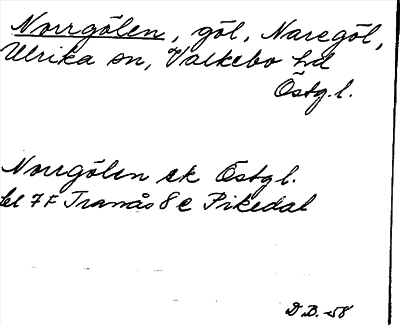 Norrgölen, göl, Naregöl,
Ulrika sn, Valkebo hd
Östg.l.
Norrgölen ek Östgl.
bl 7F Tranås 8e Pikedal
D.B. -58